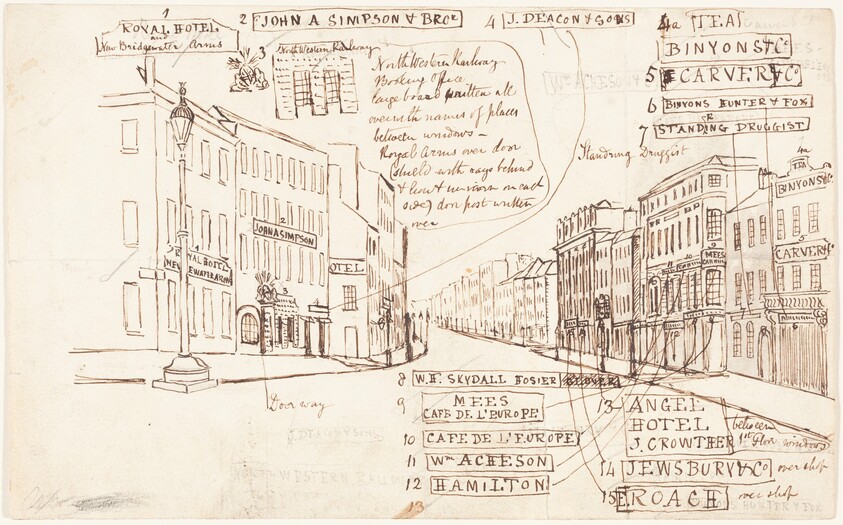 1
ROYAL HOTEL
and
New Bridgewater Arms
2 JOHN A SIMPSON & BROr
3
North Western Railway
North Western Railway
Booking office
large board written all
over with names of places
between windows –
Royal Arms over door
(shield with rays behind
& lion & unicorn on each
side) door post written
over
4 J. DEACON & SONS
4a TEA
BINYONS & Co
5 CARVER & Co
6 BINYONS HUNTER & FOX
OR
7 STANDING DRUGGIST
Standring Druggist
2
JOHN A SIMPSON
1
ROYAL HOTEL
NEW
EWATER ARMS
3
OTEL
4a
TEA
BINYONS & Co
5
CARVER & Co
6
9
MEES
10
11
12
Doorway
8 W.H. SKYDALL HOSIER GLOVER
9 MEES
CAFE DE L'EUROPE
10 CAFE DE L'EUROPE
11 Wm ACHESON
12 HAMILTON
13
13 ANGEL
HOTEL
J. CROWTHER
between
1st Floor windows
14 JEWSBURY & Co over shop
15 E. ROACH over shop